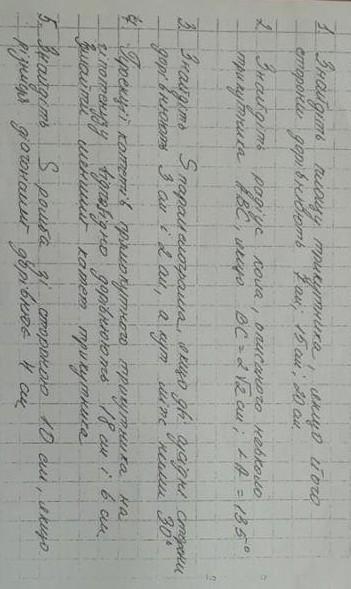 1. Знайдіть площу трикутника, якщо його
сторони дорівнюють 7 см; 15 см; 20 см.
2. Знайдіть радіус кола, описаного навколо
трикутника ABC, якщо BC = 2√2 см; ∠A = 135°
3. Знайдіть S паралелограма, якщо дві сусідні сторони
дорівнюють 3 см і 2 см, а кут між ними 30°
4. Проекції катетів прямокутного трикутника на
гіпотенузу відповідно дорівнюють 18 см і 6 см.
Знайти менший катет трикутника
5. Знайдіть S ромба зі стороною 10 см, якщо
різниця діагоналей дорівнює 4 см